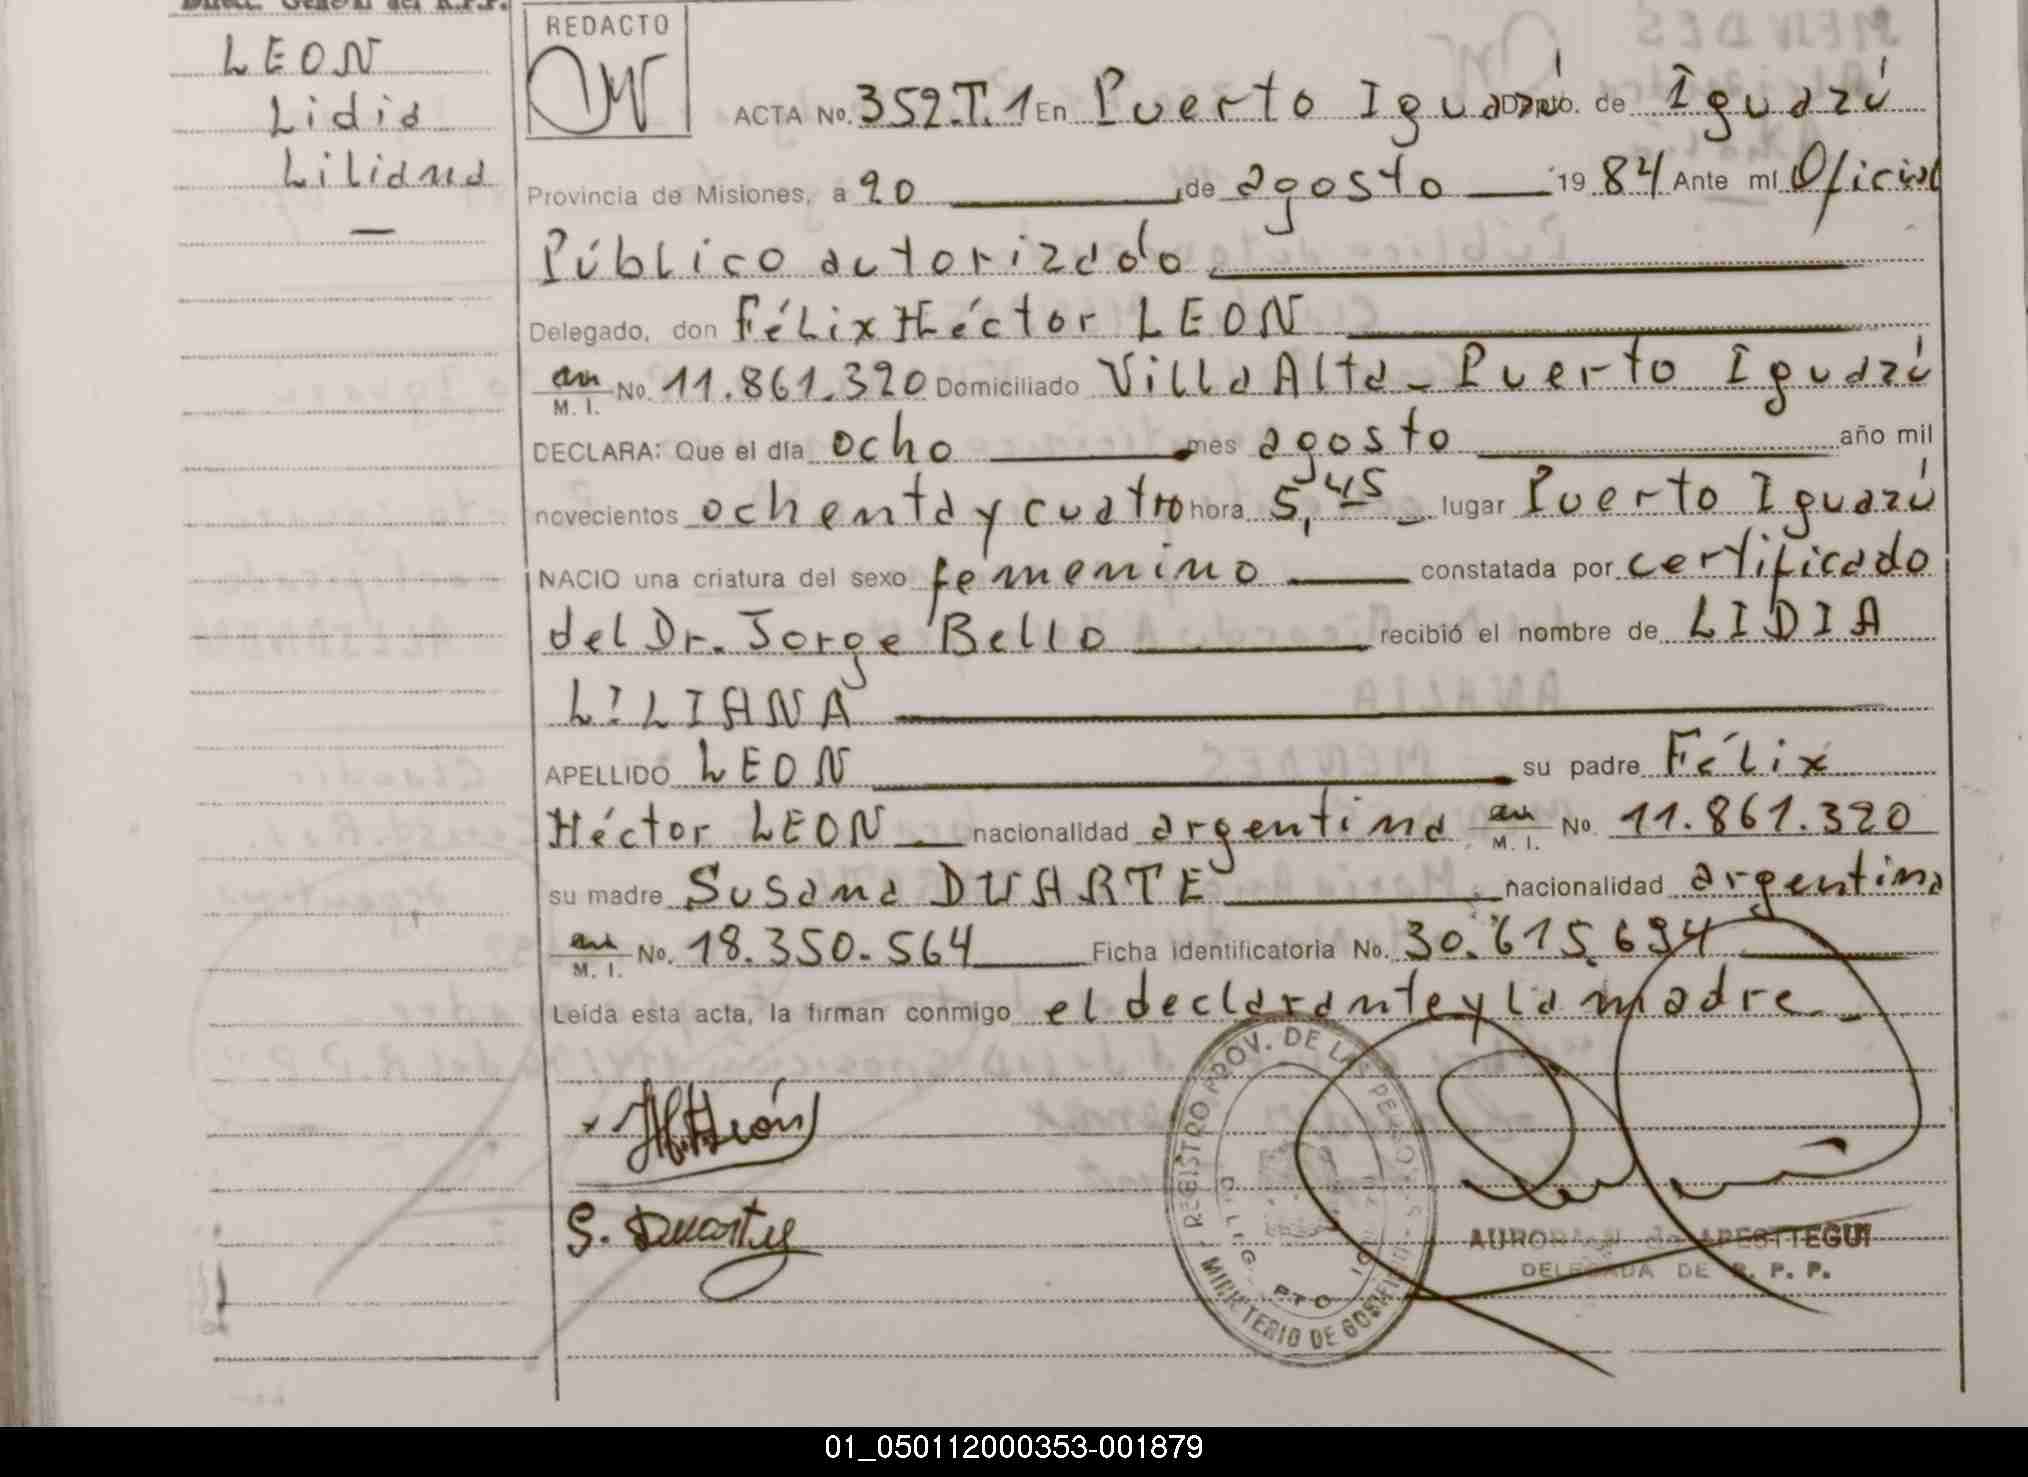 Direct. General del R.P.P.
LEON
Lidia
Liliana
—
REDACTO
ACTA No. 352.T.1 En Puerto Iguazú Dpto. de Iguazú
Provincia de Misiones, a 20 de agosto 19 84 Ante mí Oficial
Público autorizado
Delegado, don Félix Héctor LEON
M. I. No. 11.861.320 Domiciliado Villa Alta - Puerto Iguazú
DECLARA: Que el día ocho mes agosto año mil
novecientos ochenta y cuatro hora 5,45 lugar Puerto Iguazú
NACIO una criatura del sexo femenino constatada por certificado
del Dr. Jorge Bello recibió el nombre de LIDIA
LILIANA
APELLIDO LEON su padre Félix
Héctor LEON nacionalidad argentina M. I. No. 11.861.320
su madre Susana DUARTE nacionalidad argentina
M. I. No. 18.350.564 Ficha identificatoria No. 30.615.694
Leída esta acta, la firman conmigo el declarante y la madre
REGISTRO PROV. DE LAS PERSONAS - MINISTERIO DE GOBIERNO
S. Duarte
DELEGADA DE R. P. P.
01_050112000353-001879